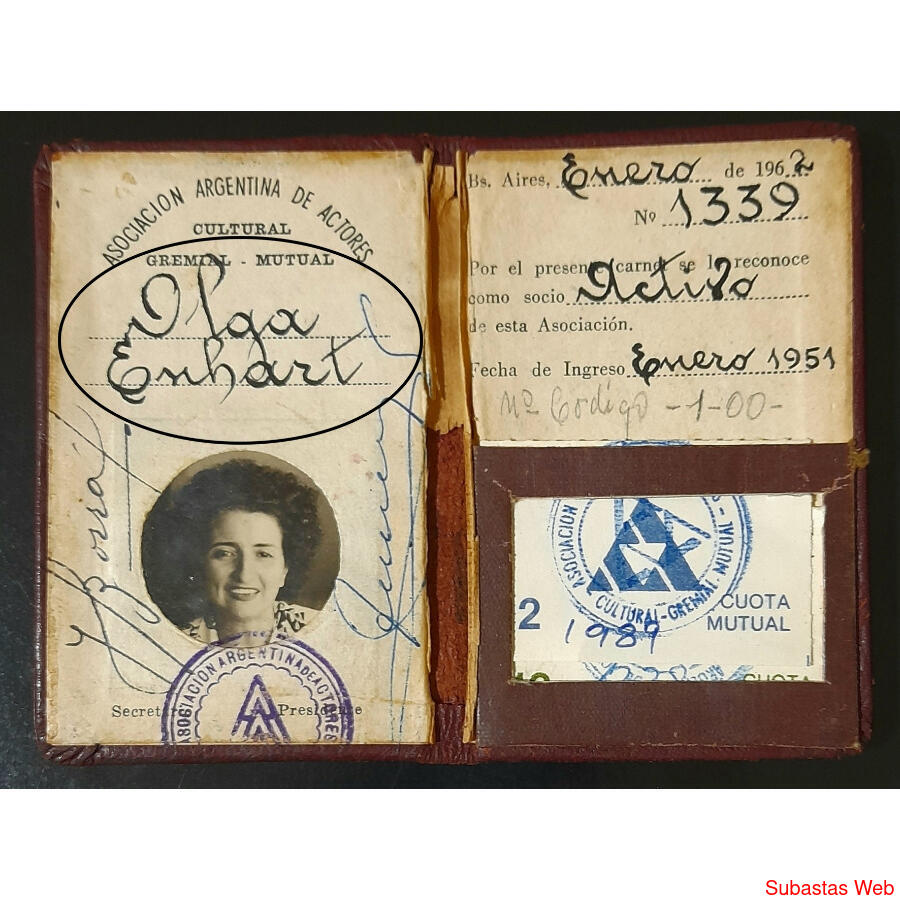 ASOCIACION ARGENTINA DE ACTORES
CULTURAL
GREMIAL - MUTUAL
Olga
Enhart
ASOCIACION ARGENTINA DE ACTORES
Secretario Presidente
Bs. Aires, Enero de 1962
Nº 1339
Por el presente carnet se le reconoce
como socio Activo
de esta Asociación.
Fecha de Ingreso Enero 1951
Nº Codigo -1-00-
ASOCIACION
CULTURAL-GREMIAL-MUTUAL-
2 CUOTA
MUTUAL
1989
CUOTA
Subastas Web